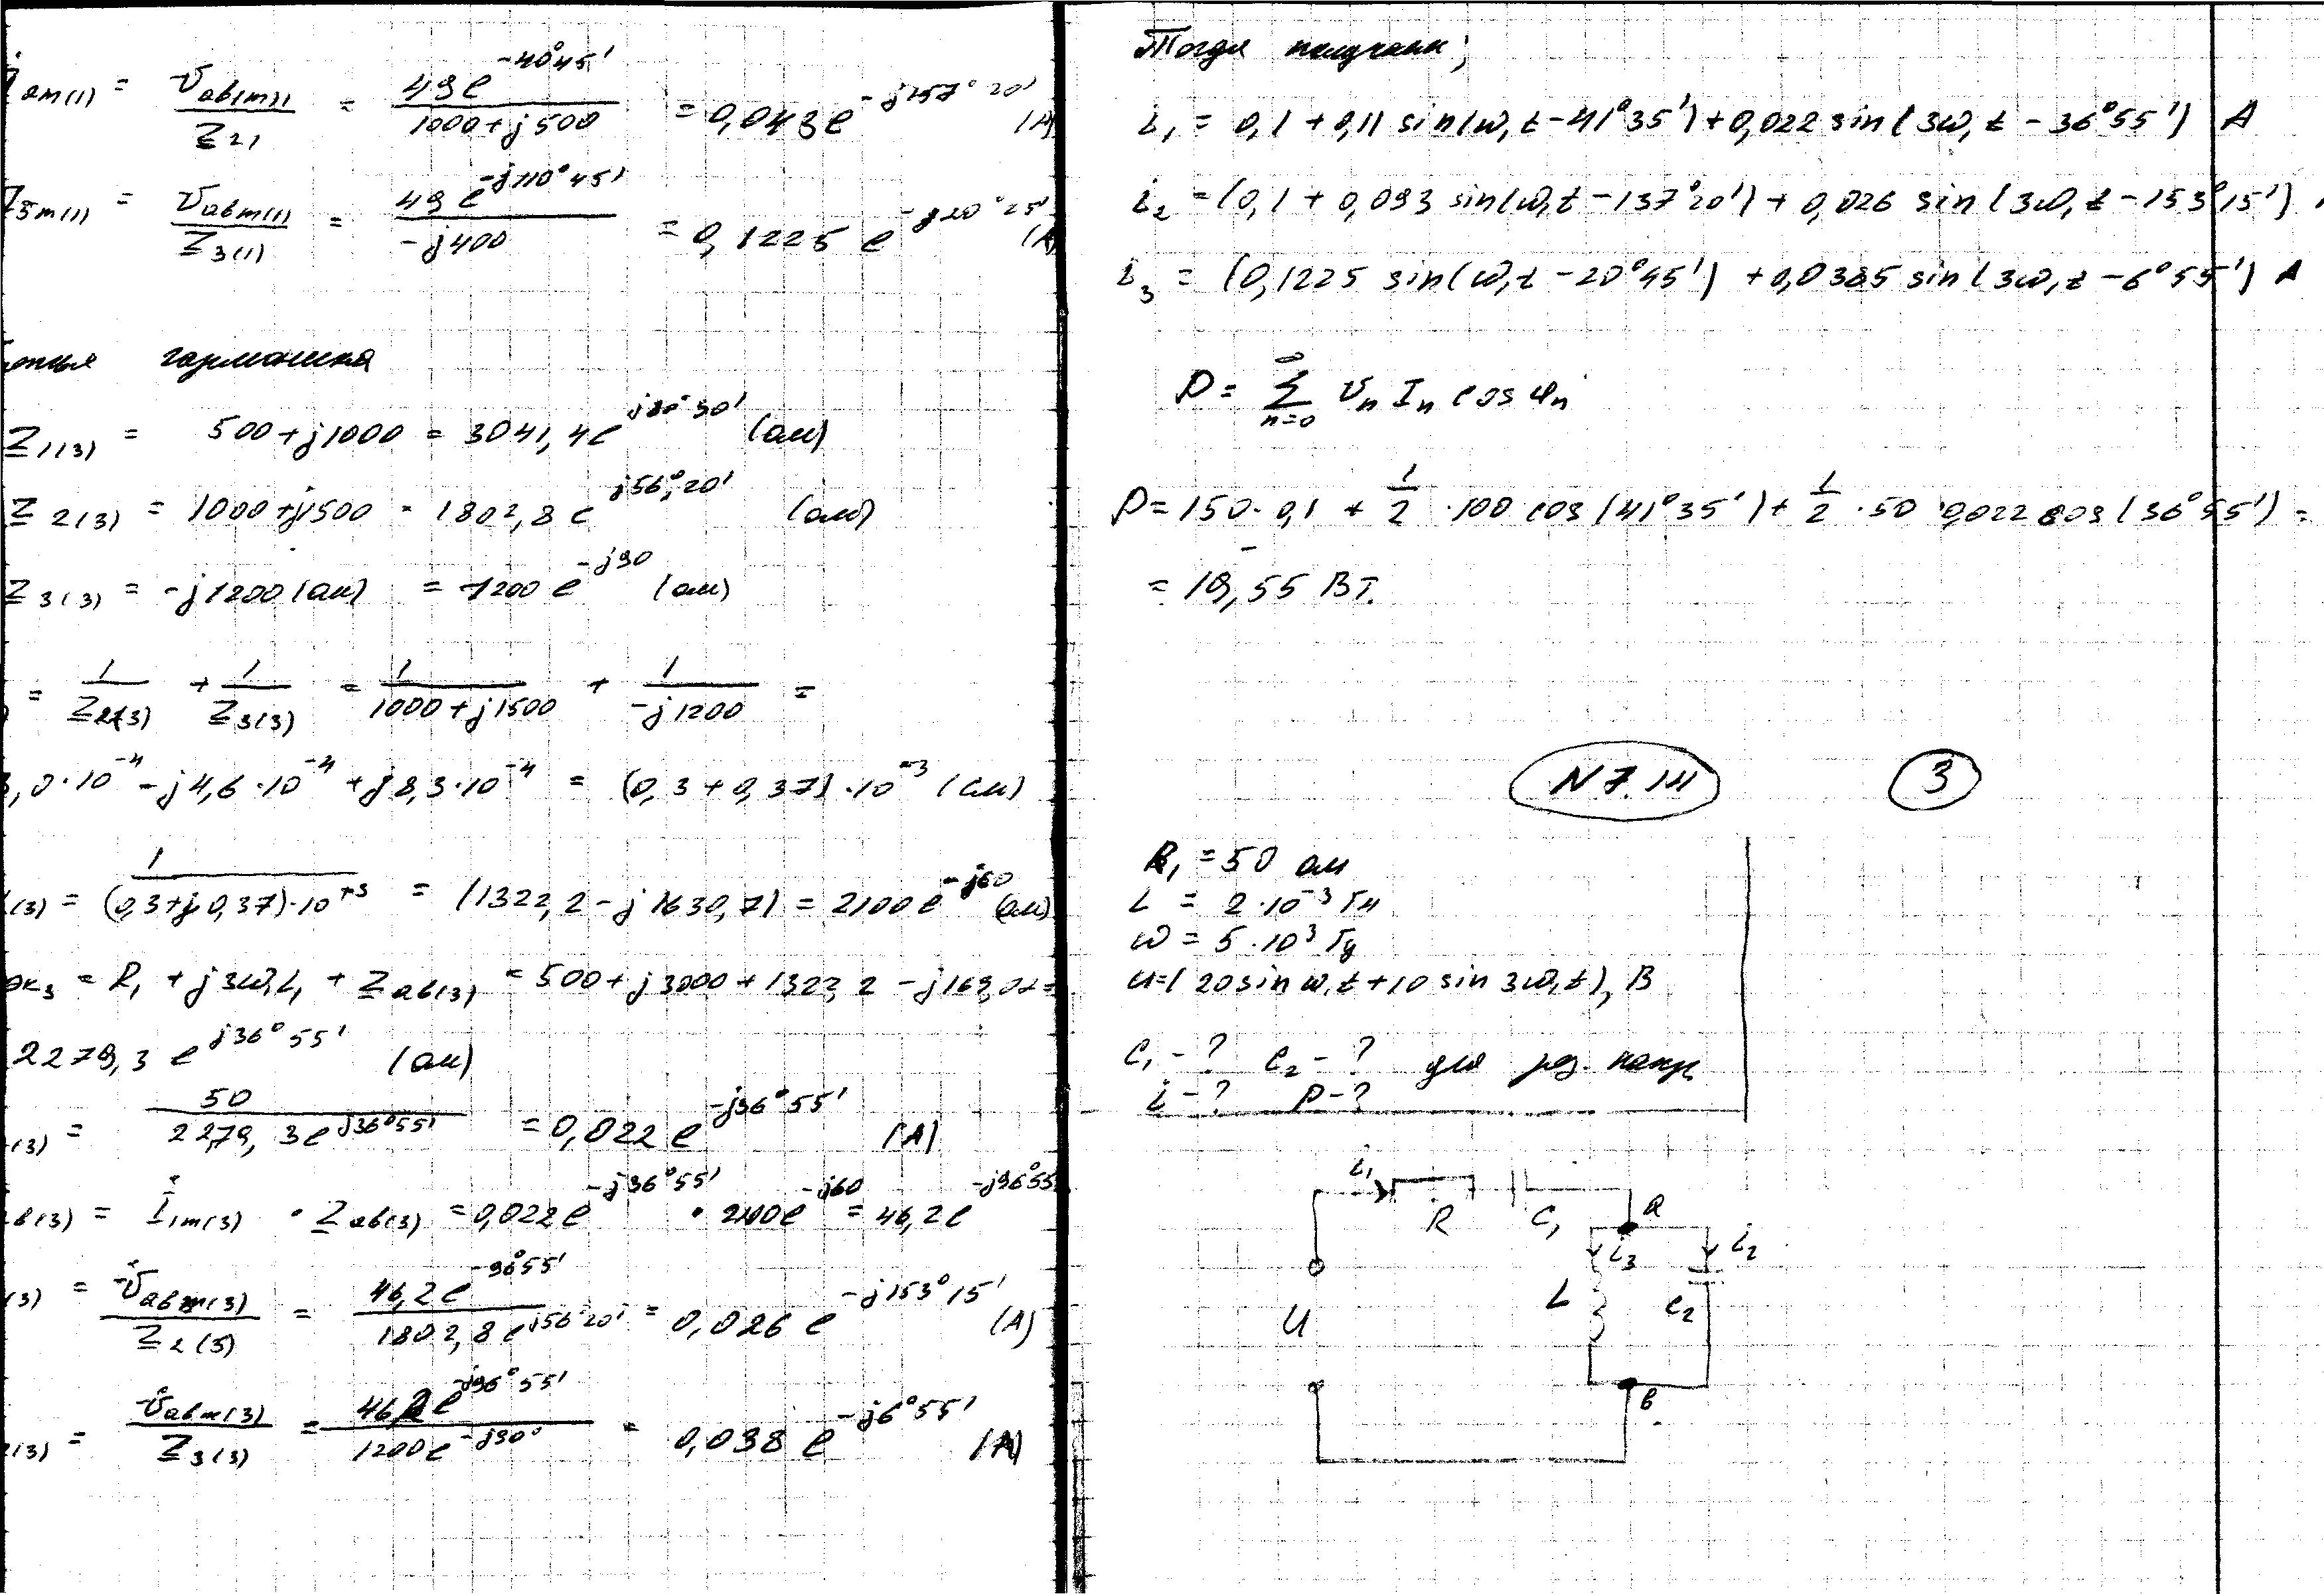 İ₂m(1) = U̇abm(1) / Z21 = 49e^-40°45' / 1000+j500 = 0,043e^-j257°20' (A)
I3m(1) = U̇abm(1) / Z3(1) = 49e^-j110°45' / -j400 = 0,1225 e^-j20°25' (A)
гармоника
Z1(3) = 500+j1000 = 3041,4e^j80°30' (ом)
Z2(3) = 1000+j1500 = 1802,8e^j56°20' (ом)
Z3(3) = -j1200(ом) = -1200e^-j90 (ом)
= 1/Z2(3) + 1/Z3(3) = 1/1000+j1500 + 1/-j1200 =
3,0·10^-4 -j4,6·10^-4 +j8,3·10^-4 = (0,3+0,37)·10^-3 (см)
(3) = 1/(0,3+j0,37)·10^+3 = (1322,2-j1630,7) = 2100e^-j60 (ом)
эк3 = R₁ + j3ω₁L₁ + Zab(3) = 500+j3000+1322,2-j163,07=
2279,3 e^j36°55' (ом)
(3) = 50 / 2279,3e^j36°55' = 0,022e^-j36°55' (A)
в(3) = İ1m(3) · Zab(3) = 0,022e^-j36°55' · 2100e^-j60 = 46,2e^-j96°55'
(3) = U̇abm(3) / Z2(3) = 46,2e^-96°55' / 1802,8e^j56°20' = 0,026e^-j153°15' (A)
(3) = U̇abm(3) / Z3(3) = 46,2e^-j96°55' / 1200e^-j90° = 0,038e^-j6°55' (A)
Тогда получаем;
i₁ = 0,1+0,11 sin(ω₁t-41°35')+0,022 sin(3ω₁t-36°55') A
i₂ = (0,1+0,093 sin(ω₁t-137°20')+0,026 sin(3ω₁t-153°15')
i₃ = (0,1225 sin(ω₁t-20°45') +0,0385 sin(3ω₁t-6°55') A
P = ∞ Σ n=0 Un In cos φn
P=150·0,1 + 1/2 ·100 cos(41°35')+ 1/2 ·50·0,022 cos(36°55') =
= 19,55 Вт.
N 7.14 3
R₁ = 50 ом
L = 2·10^-3 Гн
ω = 5·10^3 Гц
u=(20sin ω₁t+10 sin 3ω₁t), В
C₁-? C₂-? для рез. напр.
i-? P-?
i₁
R C₁ a
i₃ i₂
L C₂
U
в